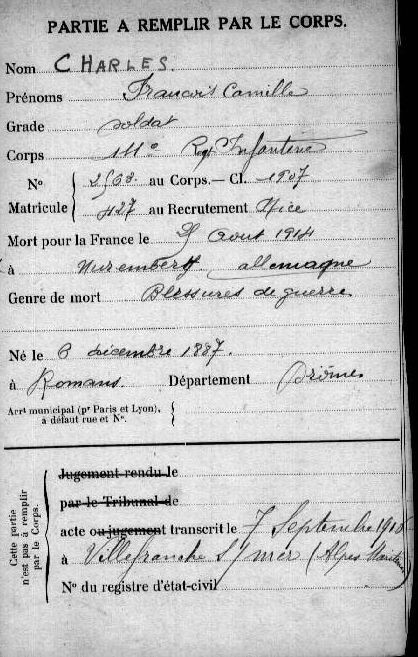 PARTIE A REMPLIR PAR LE CORPS.
Nom CHARLES.
Prénoms François Camille
Grade soldat
Corps 111e Rgt Infanterie
No 2568 au Corps. — Cl. 1907
Matricule 427 au Recrutement Nice
Mort pour la France le Aout 1914
à Nuremberg allemagne
Genre de mort Blessures de guerre
Né le 6 décembre 1887.
à Romans Département Drôme
Arrt municipal (pr Paris et Lyon),
à défaut rue et No.
Cette partie
n'est pas à remplir
par le Corps.
Jugement rendu le
par le Tribunal de
acte ou jugement transcrit le 7 Septembre
à Villefranche s/mer (Alpes Maritimes
No du registre d'état-civil